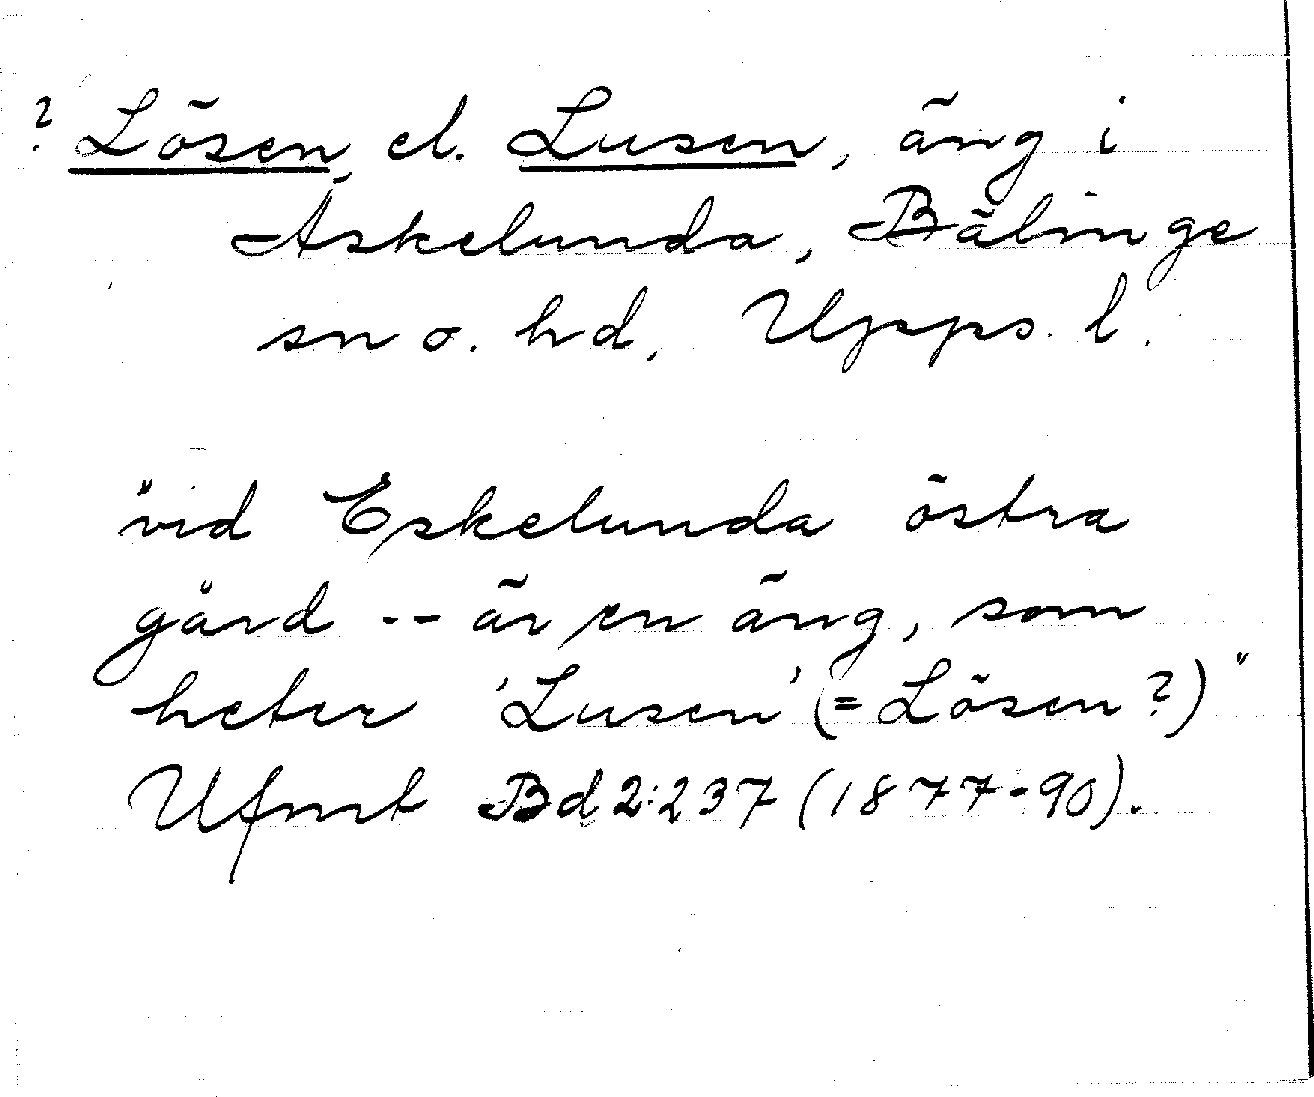 ? Lösen, el. Lusen, äng i
Äskelunda, Bälinge
sn o. hd, Upps. l.
"vid Eskelunda östra
gård -- är en äng, som
heter 'Lusen' (= Lösen?)"
Ufmt Bd 2:237 (1877-90).